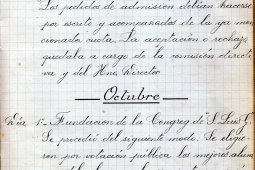 Los pedidos de admisión debían hacerse
por escrito y acompañados de la ya men-
cionada cuota. La aceptación o rechazo
quedaba a cargo de la comisión directi-
va y del Hno. Director
Octubre
Día 1º- Fundación de la Congreg. de "S. Luis G."
Se procedió del siguiente modo. Se eligie-
ron por votación pública los mejores alum